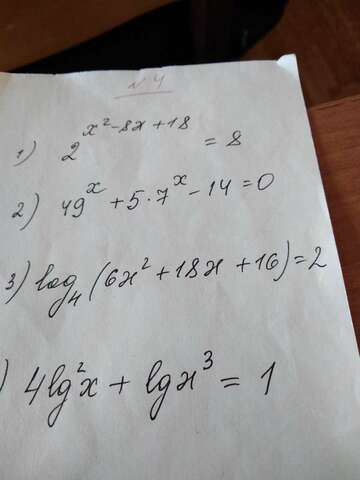 № 4
1) 2^(x²-8x+18) = 8
2) 49^x + 5·7^x - 14 = 0
3) log₄ (6x² + 18x + 16) = 2
) 4lg²x + lgx³ = 1